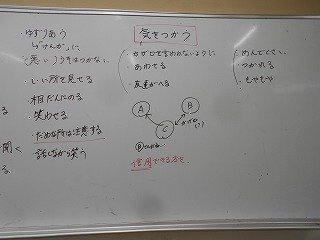 ゆずりあう
"けんか"に
悪いうそはつかない
いい所を見せる
相だんにのる
笑わせる
だめな所は注意する
聞く
話しながら笑う
る
気をつかう
カゲ口を言われないように
あわせる
友達がへる
A
B
C
カゲ口
信用できる方を
めんどくさい
つかれる
もやもや